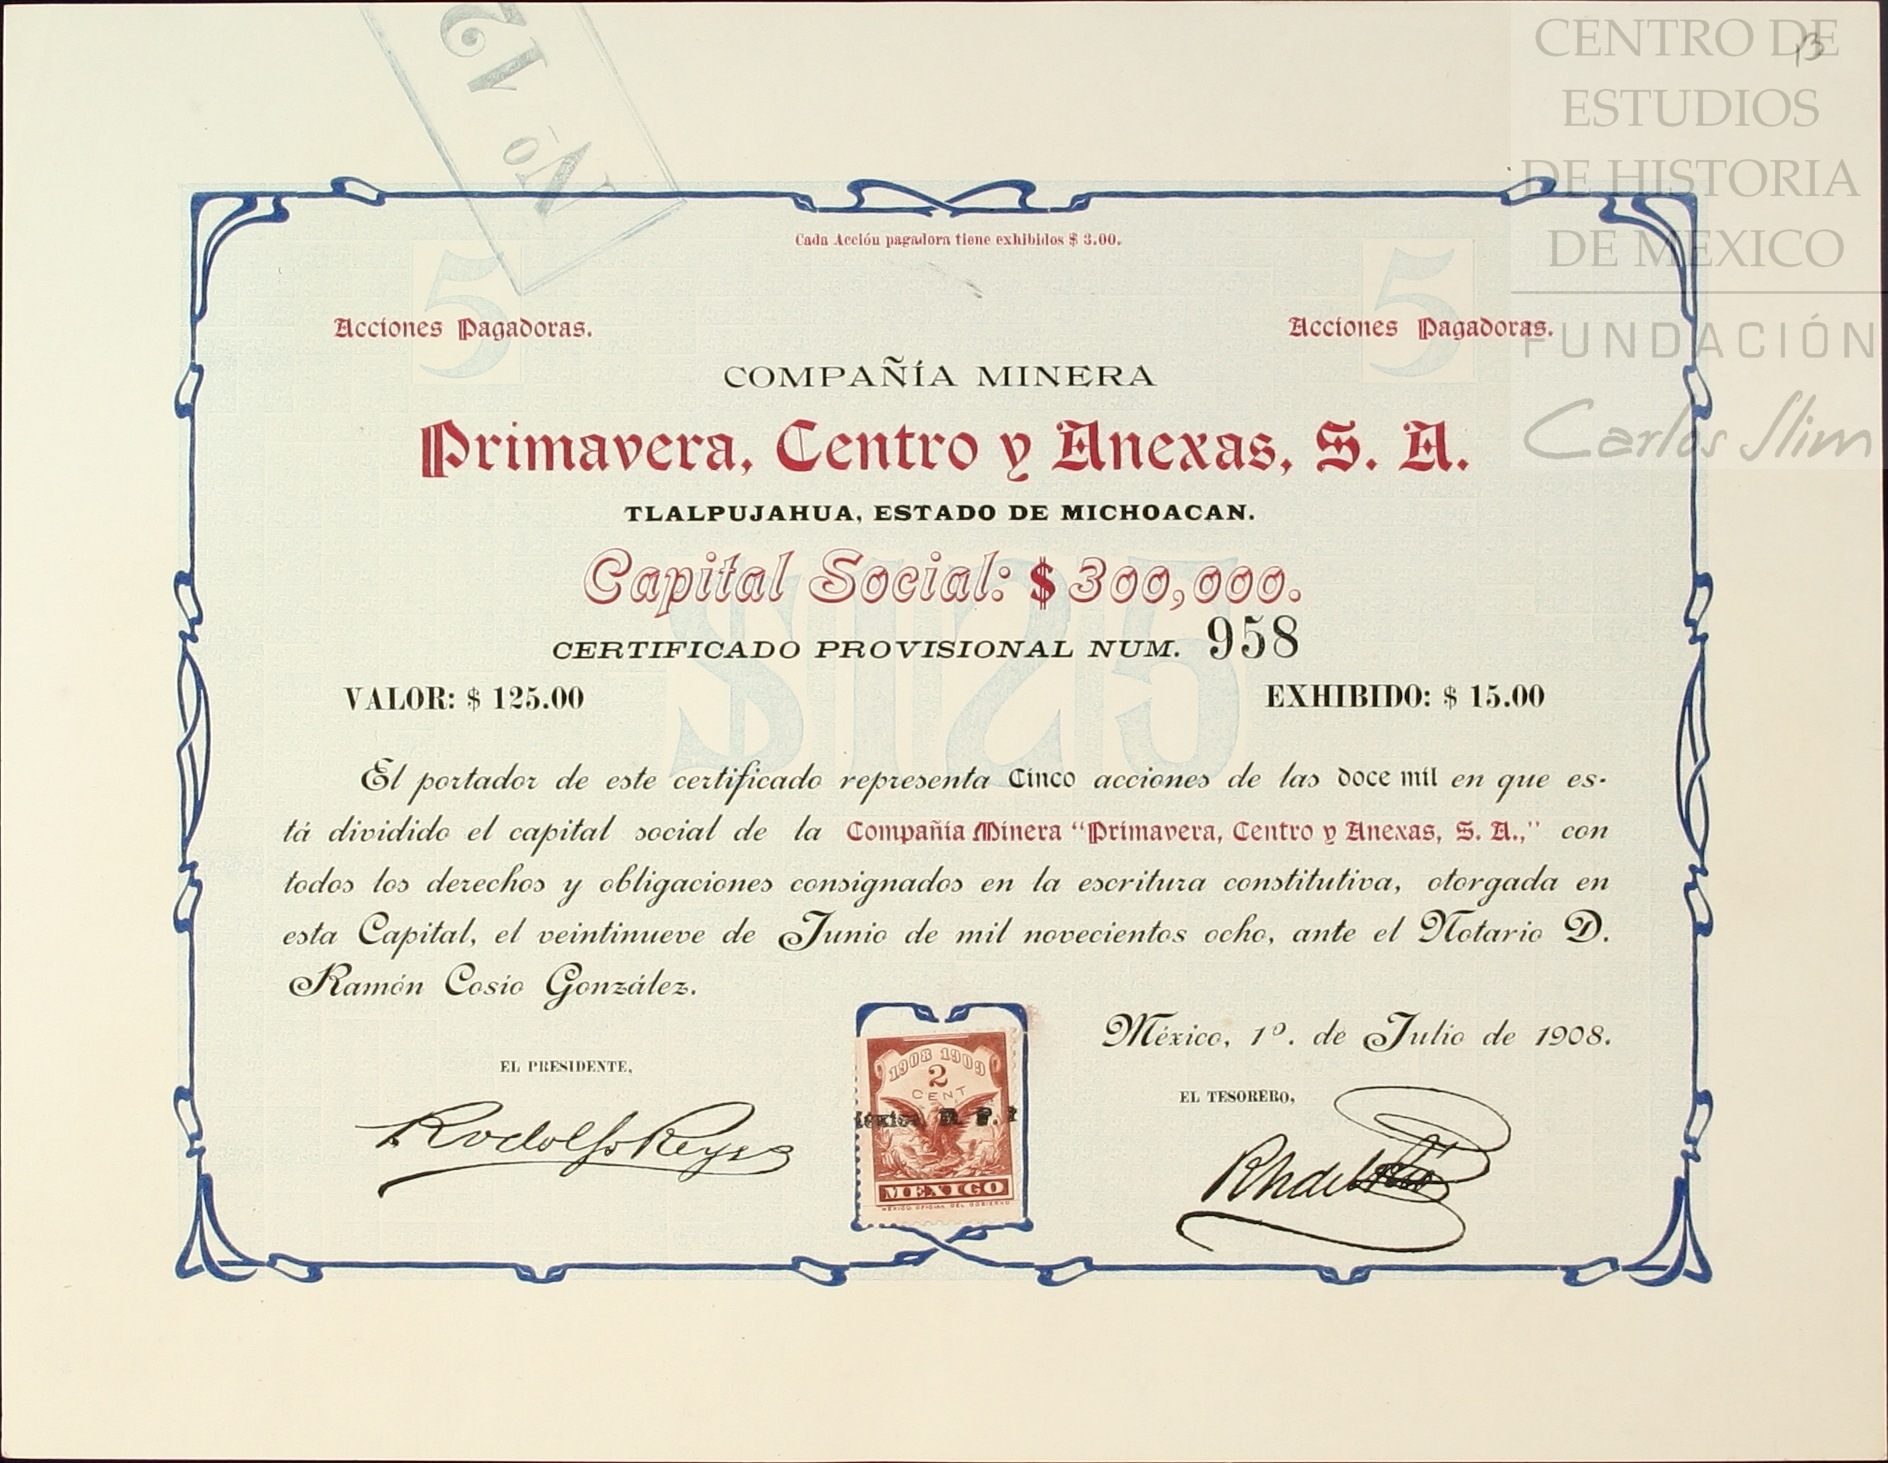 No 12
13
CENTRO DE
ESTUDIOS
DE HISTORIA
DE MEXICO
FUNDACIÓN
Carlos Slim
Cada Acción pagadora tiene exhibidos $ 3.00.
5 5
Acciones Pagadoras. Acciones Pagadoras.
COMPAÑÍA MINERA
Primavera, Centro y Anexas, S. A.
TLALPUJAHUA, ESTADO DE MICHOACAN.
Capital Social: $ 300,000.
$125
CERTIFICADO PROVISIONAL NUM. 958
VALOR: $ 125.00 EXHIBIDO: $ 15.00
El portador de este certificado representa Cinco acciones de las doce mil en que es-
tá dividido el capital social de la Compañía Minera "Primavera, Centro y Anexas, S. A.," con
todos los derechos y obligaciones consignados en la escritura constitutiva, otorgada en
esta Capital, el veintinueve de Junio de mil novecientos ocho, ante el Notario D.
Ramón Cosío González.
México, 1º. de Julio de 1908.
EL PRESIDENTE,
Rodolfo Reyes
EL TESORERO,
1908 1909
2
CENT
México D. F.
MEXICO